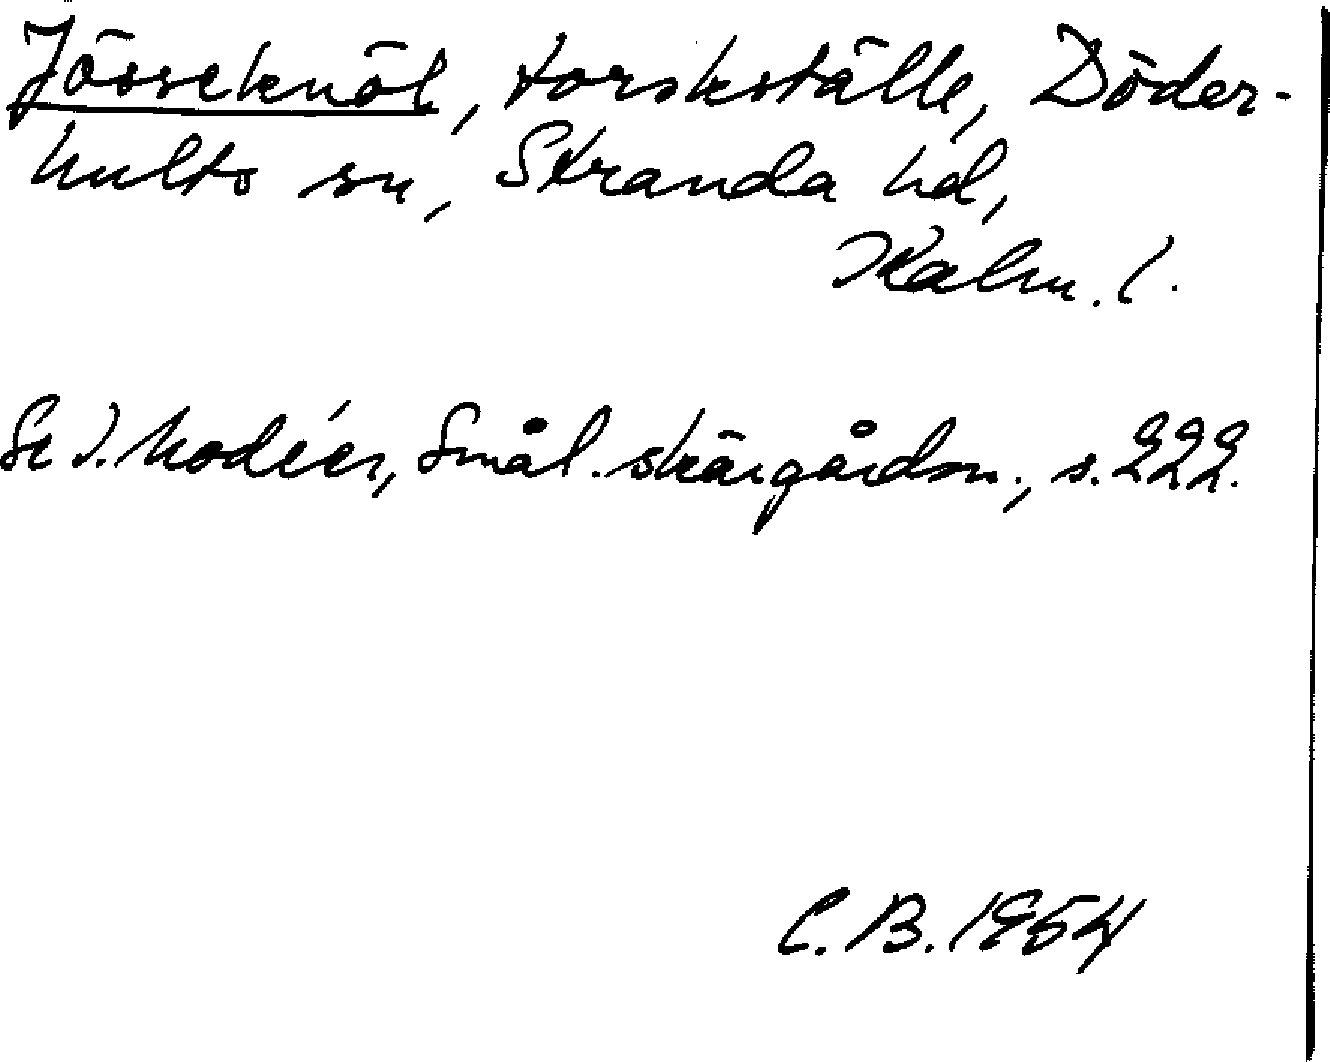 Jösseknöl, torskställe, Döder-
hults sn, Stranda hd,
Kalm. l.
Se I. Modéer, Smål. skärgårdsn., s. 222.
C. B. 1954